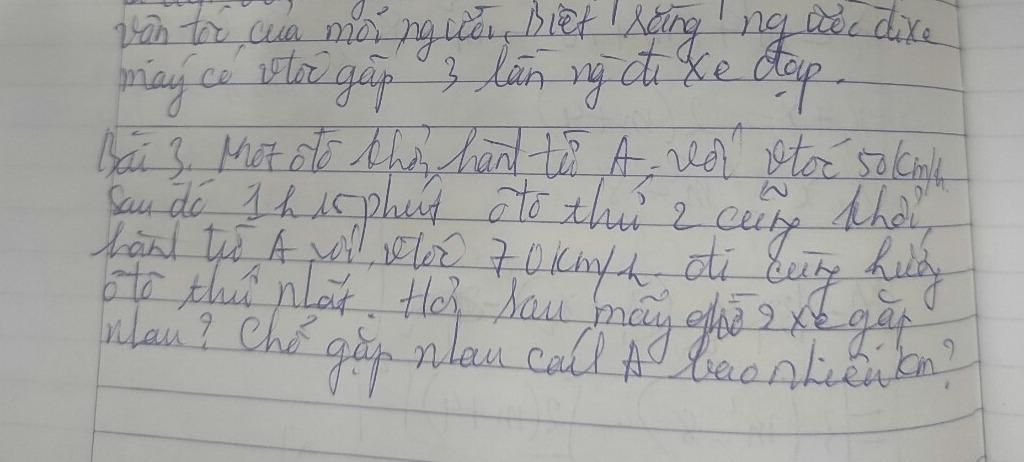 vân tốc của mỗi người, Biết rằng người đi xe
máy có vtốc gấp 3 lần ng đi xe đạp.
Bài 3. Một ôtô khởi hành từ A, với vtốc 50km/h
Sau đó 1h 15 phút ôtô thứ 2 cũng khởi
hành từ A với vtốc 70km/h đi cùng hướng
ôtô thứ nhất. Hỏi sau mấy giờ 2 xe gặp
nhau? Chỗ gặp nhau cách A bao nhiêu km?